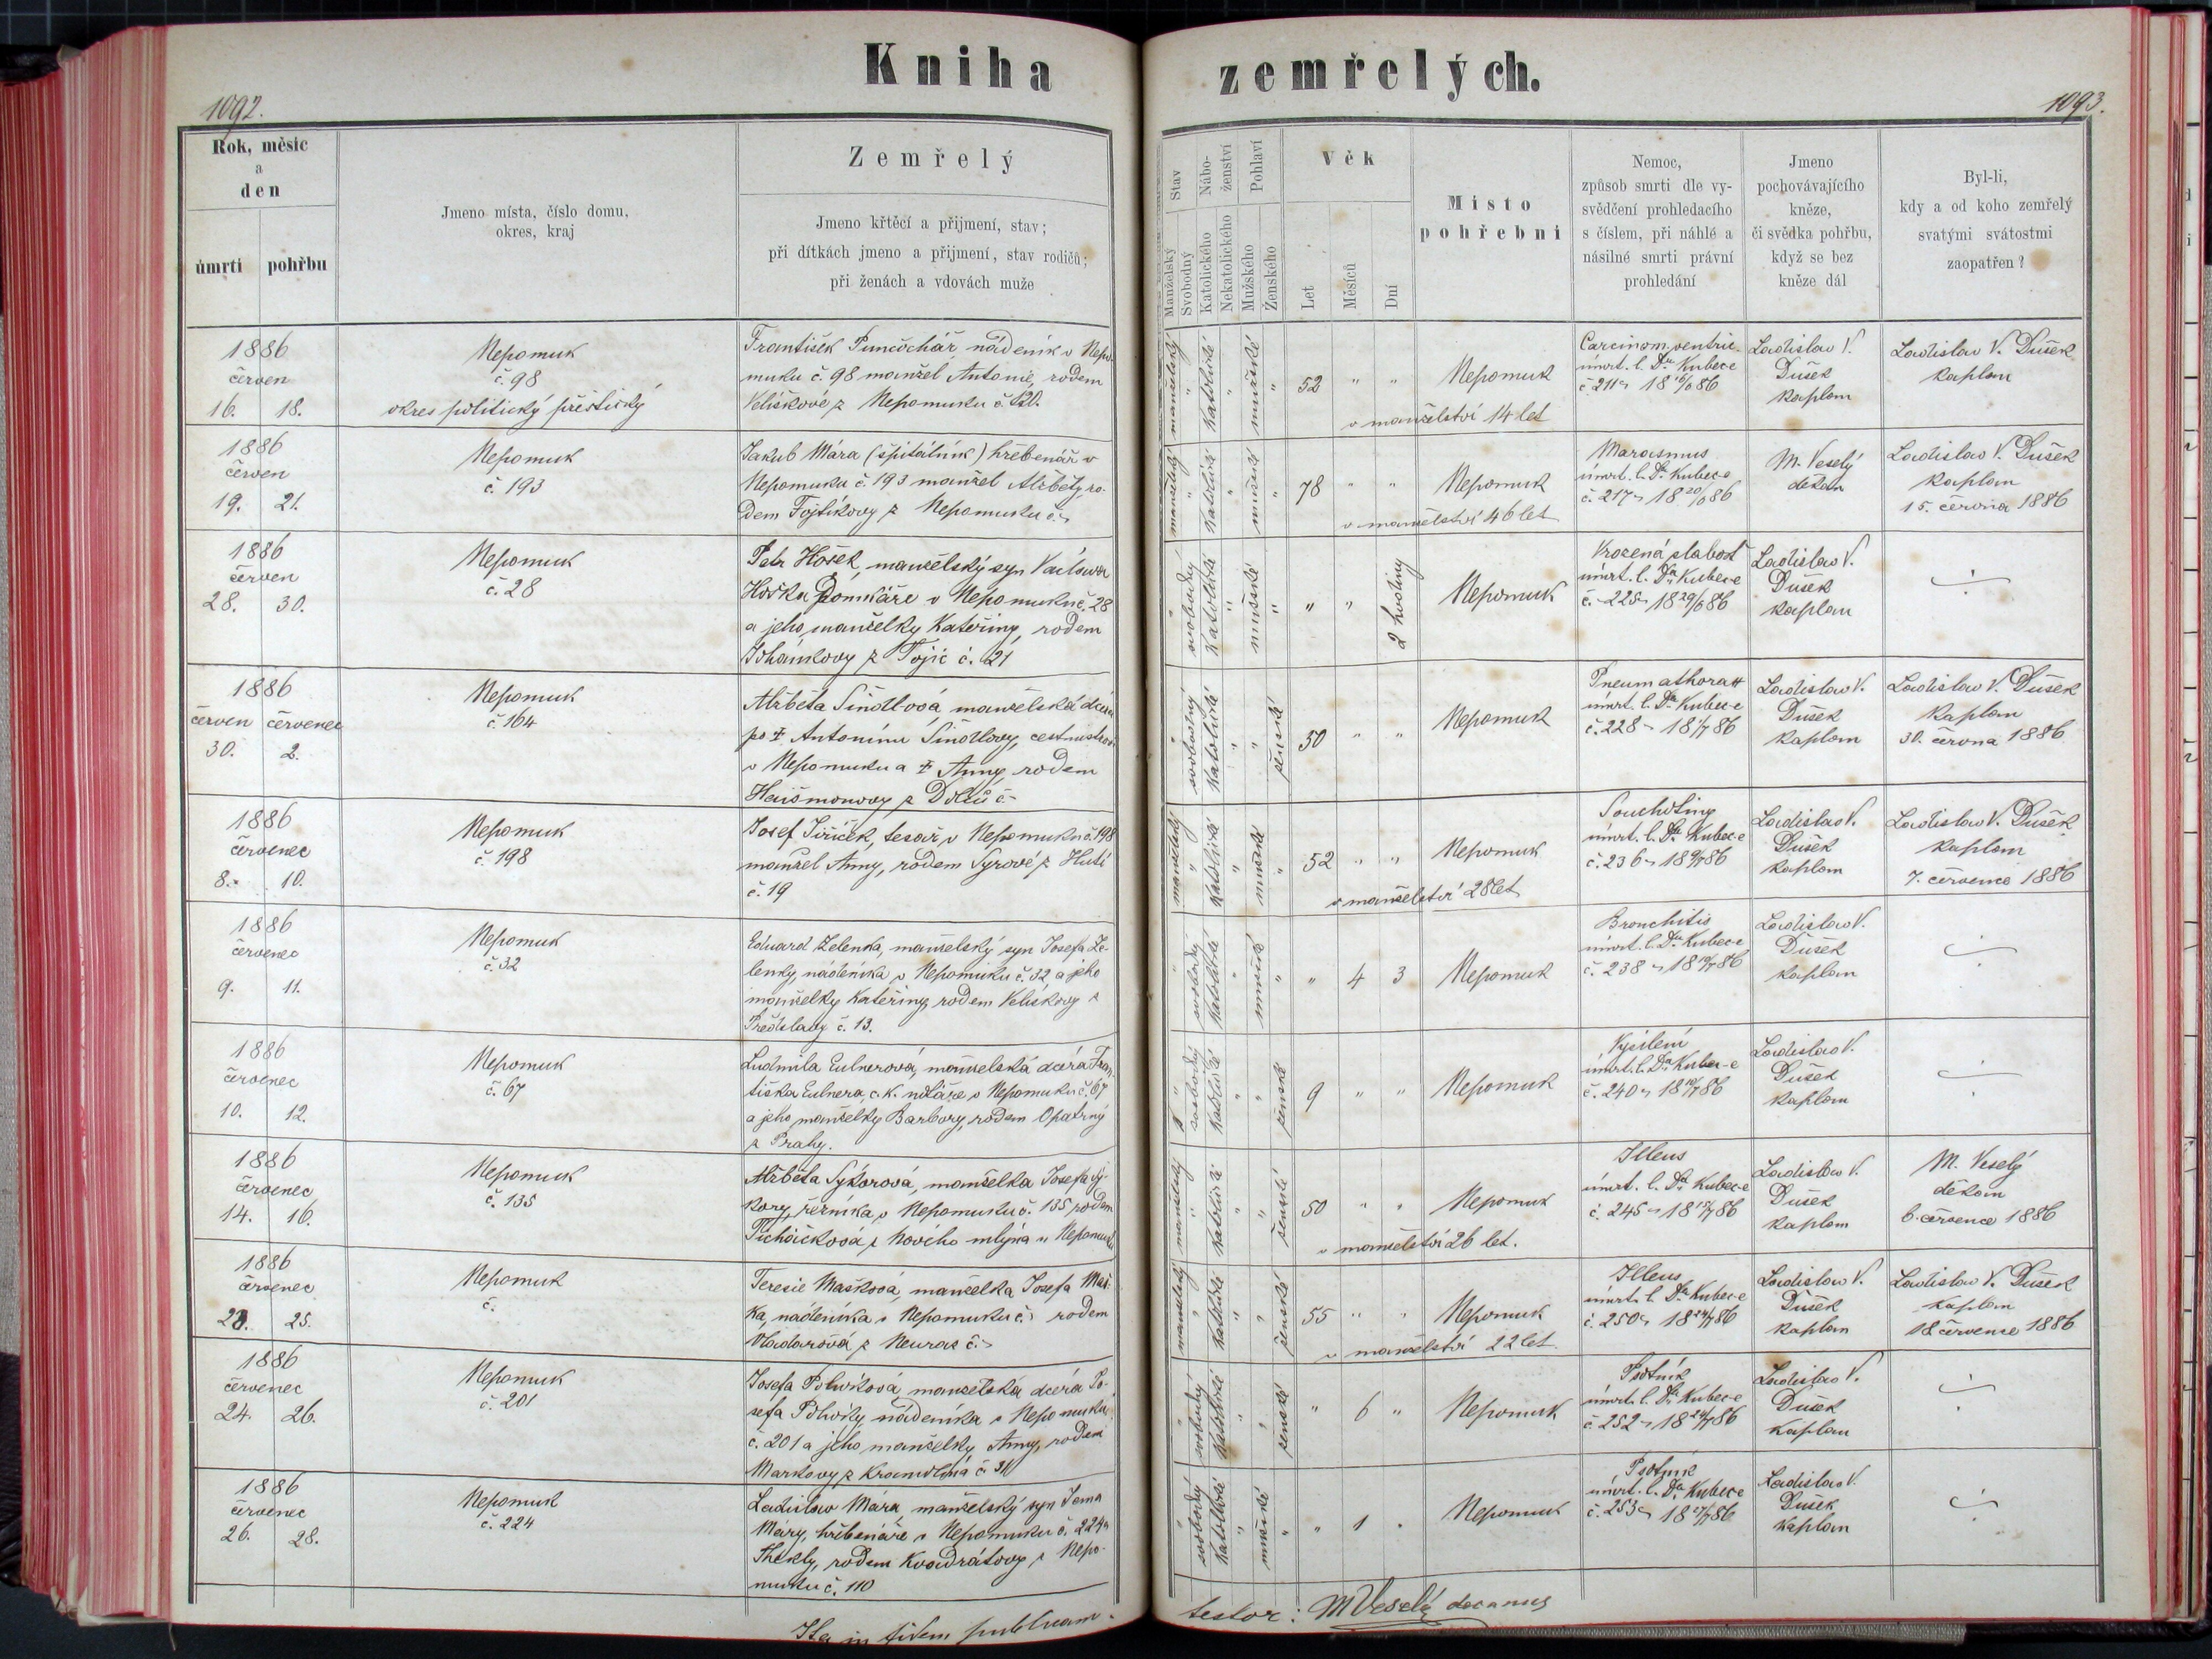 Kniha zemřelých.
1092.
1093.
Rok, měsíc
a
den
úmrtí
pohřbu
Jmeno místa, číslo domu,
okres, kraj
Zemřelý
Jmeno křtěcí a přijmení, stav;
při dítkách jmeno a přijmení, stav rodičů;
při ženách a vdovách muže
Stav
Manželský
Svobodný
Nábo-
ženství
Katolického
Nekatolického
Pohlaví
Mužského
Ženského
Věk
Let
Měsíců
Dní
Místo
pohřební
Nemoc,
způsob smrti dle vy-
svědčení prohledacího
s číslem, při náhlé a
násilné smrti právní
prohledání
Jmeno
pochovávajícího
kněze,
či svědka pohřbu,
když se bez
kněze dál
Byl-li,
kdy a od koho zemřelý
svatými svátostmi
zaopatřen?
1886
červen
16. 18.
Nepomuk
č. 98
okres politický přeštický
František Punčochář, nádeník v Nepo-
muku č. 98 manžel Antonie, rodem
Velíškové z Nepomuku č. 120.
manželský
katolické
mužské
52 " "
v manželství 14 let
Nepomuk
Carcinom. ventric.
úmrt. l. Dra Kubec-e
č. 211 18 16/6 86
Ladislav V.
Dušek
kaplan
Ladislav V. Dušek
kaplan
1886
červen
19. 21.
Nepomuk
č. 193
Jakub Mára (špitálník) hřebenář v
Nepomuku č. 193 manžel Alžběty ro-
dem Fojtíkovy z Nepomuku č.
manželský
katolické
mužské
78 " "
v manželství 46 let
Nepomuk
Marasmus
úmrt. l. Dra Kubec-e
č. 217 18 20/6 86
M. Veselý
děkan
Ladislav V. Dušek
kaplan
15. června 1886
1886
červen
28. 30.
Nepomuk
č. 28
Petr Hošek, manželský syn Václava
Hoška domkáře v Nepomuku č. 28
a jeho manželky Kateřiny, rodem
z Tojic č. 21
svobodný
katolické
mužské
" " 2 hodiny
Nepomuk
Vrozená slabost
úmrt. l. Dra Kubec-e
č. 225 18 29/6 86
Ladislav V.
Dušek
kaplan
1886
červen červenec
30. 2.
Nepomuk
č. 164
Alžběta Šindlová manželská dcera
po † Antonínu Šindlovy, cestmistrovi
v Nepomuku a † Anny, rodem
č.
svobodný
katolické
ženské
30 " "
Nepomuk
úmrt. l. Dra Kubec-e
č. 228 18 1/7 86
Ladislav V.
Dušek
kaplan
Ladislav V. Dušek
kaplan
30. června 1886
1886
červenec
8. 10.
Nepomuk
č. 198
Josef Jiříček, tesař v Nepomuku č. 198
manžel Anny, rodem Syrové z Hutí
č. 19
manželský
katolické
mužské
52 " "
v manželství 28 let
Nepomuk
Souchotiny
úmrt. l. Dra Kubec-e
č. 236 18 9/7 86
Ladislav V.
Dušek
kaplan
Ladislav V. Dušek
kaplan
7. července 1886
1886
červenec
9. 11.
Nepomuk
č. 32
Eduard Zelenka, manželský syn Josefa Ze-
lenky, nádeníka v Nepomuku č. 32 a jeho
manželky Kateřiny, rodem Velíškovy z
Předslavy č. 13.
svobodný
katolické
mužské
" 4 3
Nepomuk
Bronchitis
úmrt. l. Dra Kubec-e
č. 238 18 10/7 86
Ladislav V.
Dušek
kaplan
1886
červenec
10. 12.
Nepomuk
č. 67
Ludmila Eulnerová, manželská dcera Fran-
tiška Eulnera, c. k. notáře v Nepomuku č. 67
a jeho manželky Barbory, rodem Opatrný
z Prahy.
svobodný
katolické
ženské
9 " "
Nepomuk
Vysílení
úmrt. l. Dra Kubec-e
č. 240 18 10/7 86
Ladislav V.
Dušek
kaplan
1886
červenec
14. 16.
Nepomuk
č. 135
Alžběta Sýkorová, manželka Josefa Sý-
kory, řezníka v Nepomuku č. 135 rodem
z Nového mlýna u Nepomuku
manželský
katolické
ženské
50 " "
v manželství 26 let.
Nepomuk
Illeus
úmrt. l. Dra Kubec-e
č. 245 18 15/7 86
Ladislav V.
Dušek
kaplan
M. Veselý
děkan
6. července 1886
1886
červenec
23. 25.
Nepomuk
č.
Terezie Mašková, manželka Josefa Maš-
ka, nádeníka v Nepomuku č. rodem
z Neuraz č.
manželský
katolické
ženské
55 " "
v manželství 22 let
Nepomuk
Illeus
úmrt. l. Dra Kubec-e
č. 250 18 24/7 86
Ladislav V.
Dušek
kaplan
Ladislav V. Dušek
kaplan
18. července 1886
1886
červenec
24. 26.
Nepomuk
č. 201
Josefa Polívková, manželská dcera Jo-
sefa Polívky nádeníka v Nepomuku
č. 201 a jeho manželky Anny, rodem
Markovy z Kramolína č. 31
svobodný
katolické
ženské
" 6 "
Nepomuk
Psotník
úmrt. l. Dra Kubec-e
č. 252 18 24/7 86
Ladislav V.
Dušek
kaplan
1886
červenec
26. 28.
Nepomuk
č. 224
Ladislav Mára, manželský syn Jana
Máry, hřebenáře v Nepomuku č. 224 a
Thekly, rodem Kvadrátovy z Nepo-
muku č. 110
svobodný
katolické
mužské
" 1 "
Nepomuk
Psotník
úmrt. l. Dra Kubec-e
č. 253 18 27/7 86
Ladislav V.
Dušek
kaplan
Ita in fidem publicam
testor: M Veselý decanus